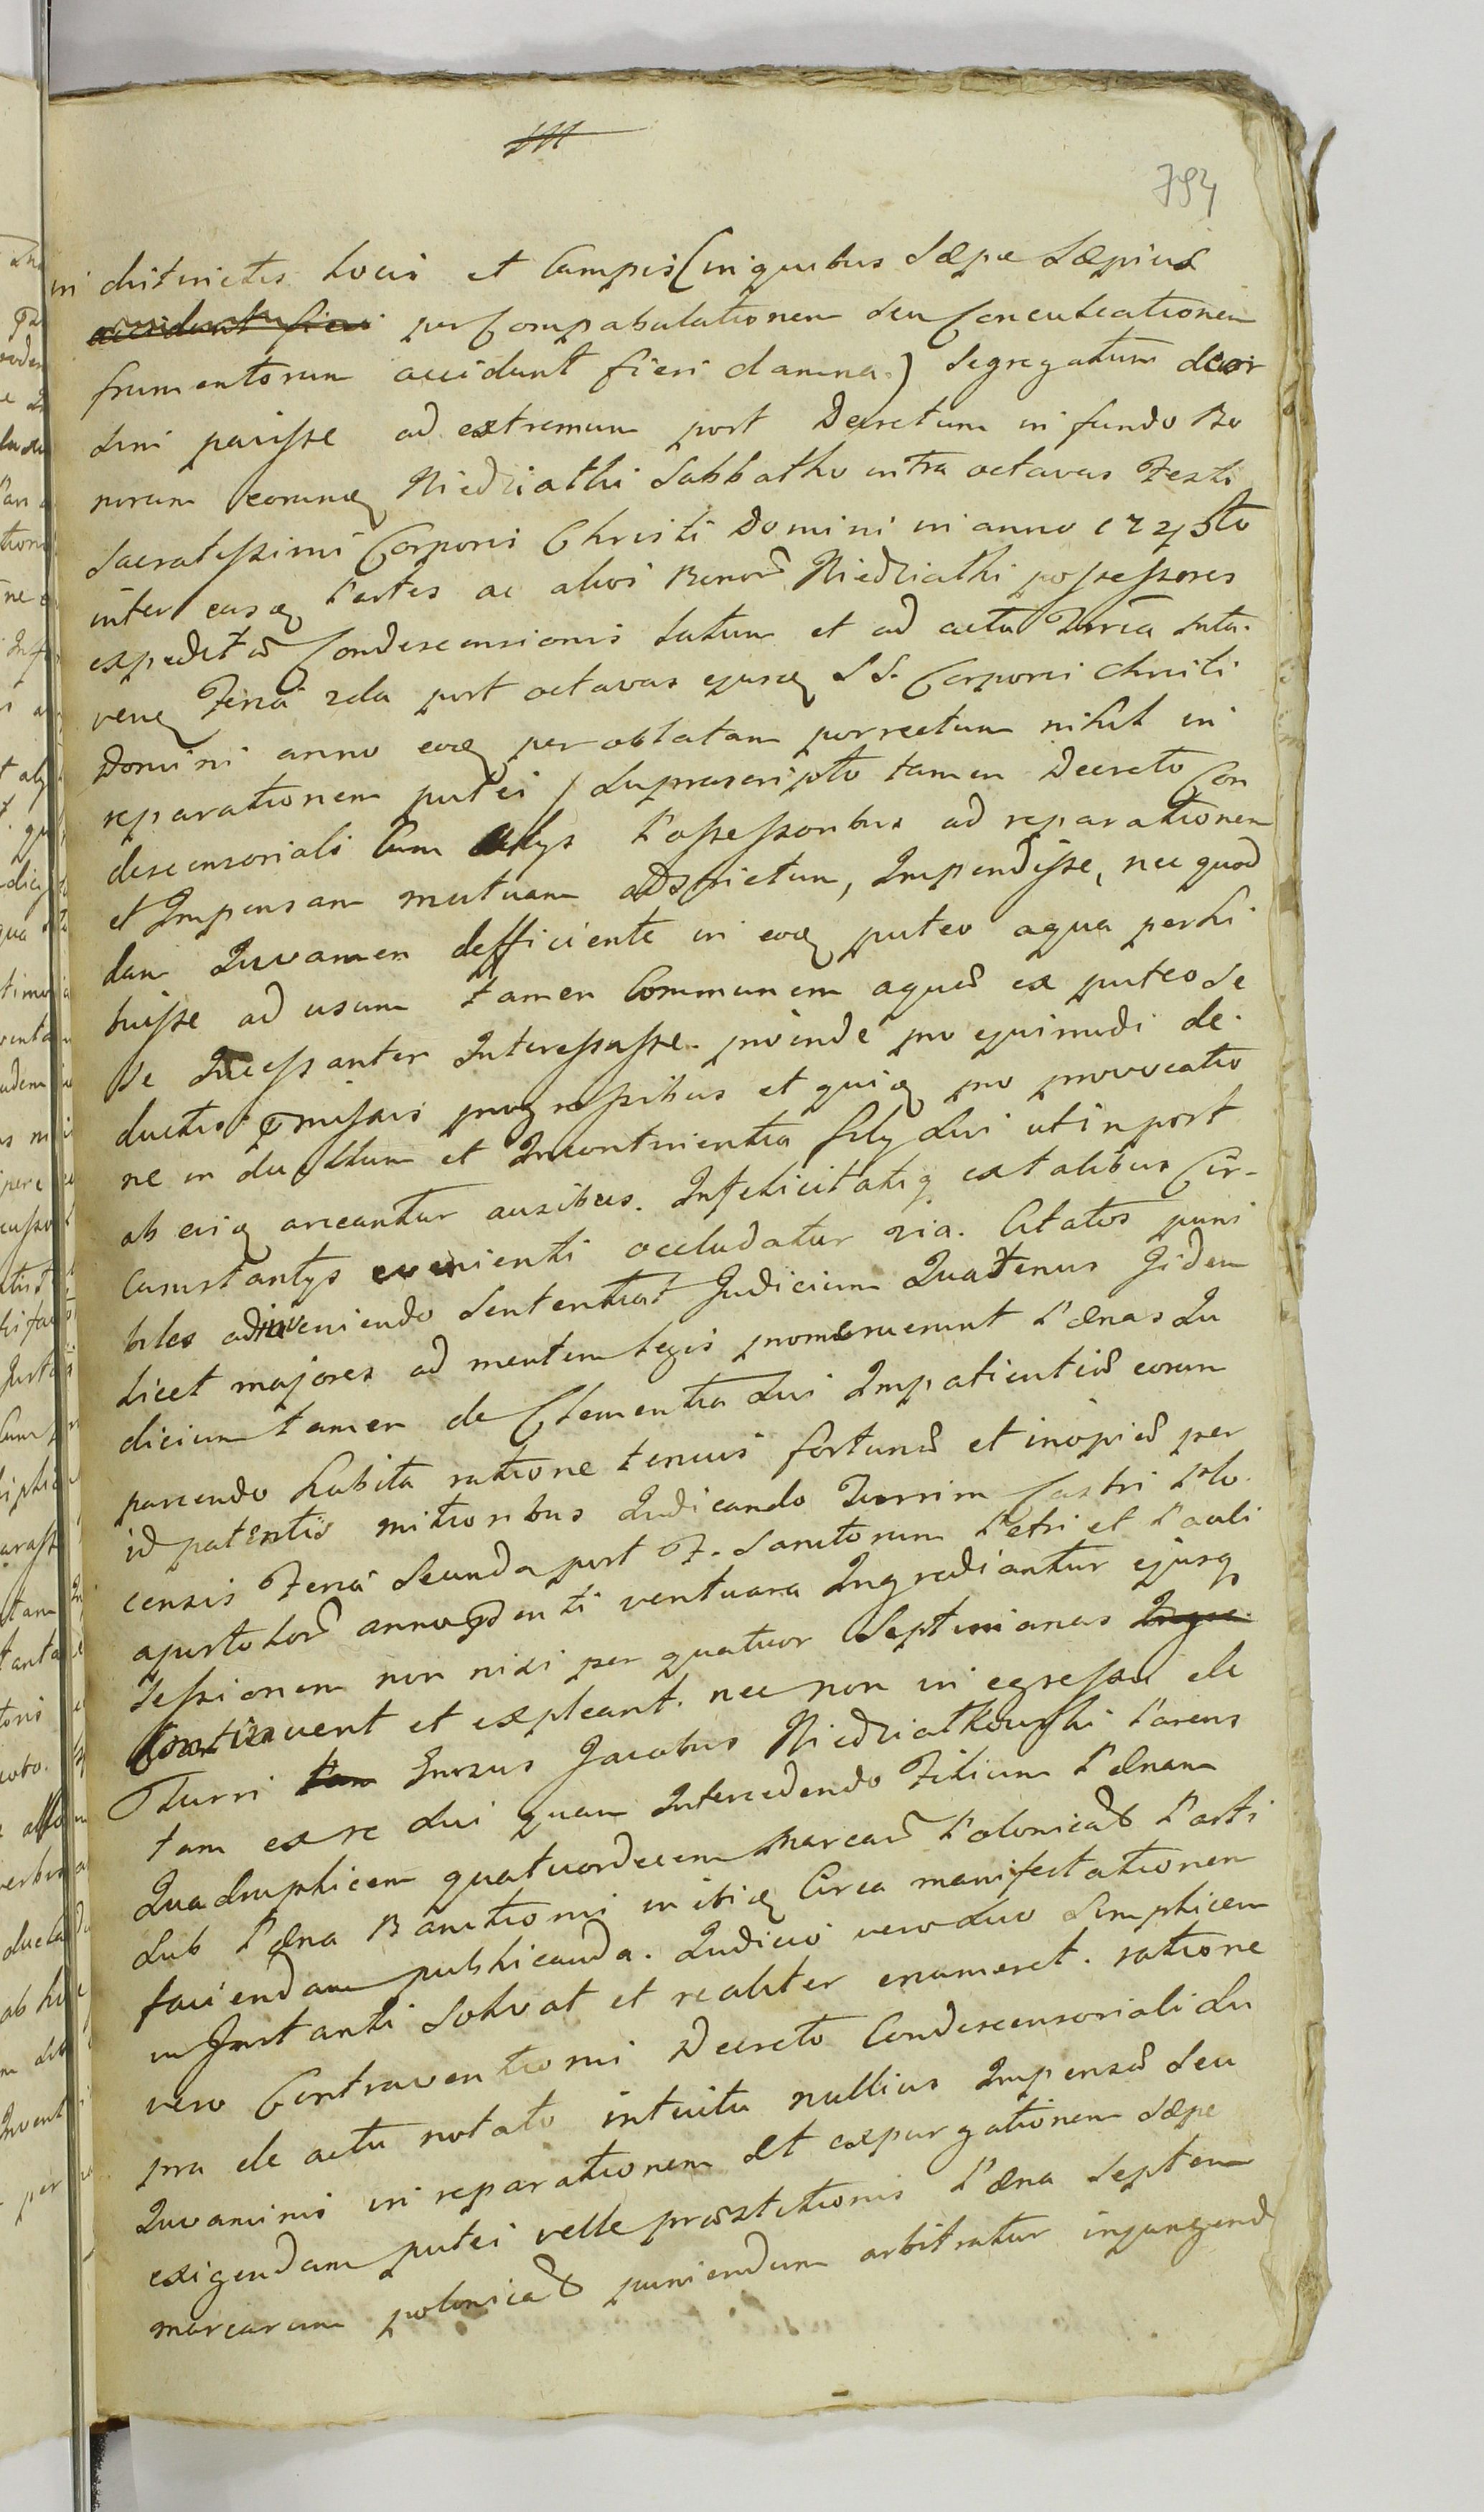 794
in districtis locis et Campis (in quibus Sæpe Sæpius
accidunt fieri per Compabulationem seu Conculcationem
frumentorum accidunt fieri damna.) Segregatum deor
dini pavisse ad extremum post Decretum in fundo Bo
norum eorumq Niedziatki Sabbatho intra octavas Festi
Sacratissimi Corporis Christi Domini in anno 1745to
inter easq Partes ac alios Bonor Niedziatki possessores
expedit Condescensionis latum et ad acta
veneq Feria 2da post octavas ejusq SS. Corporis Christi
Domini anno eoq per oblatam porrectum nihil in
reparationem putei / Suprascripto tamen Decreto Con
descensoriali Cum alys Possessoribus ad reparationem
et Impensam mutuam adstrictum, Impendisse, nec quod
dam Iuvamen defficiente in eoq puteo aqua perhi
buisse ad usum tamen Communem aquæ ex puteo se
se Incessanter Interessasse. proinde pro ejusmodi de
ductis pmissis progressibus et quiq pro provocatio
ne in duellum et Incontinentia fily Sui ut in post
ab eisq arceantur ausibus. Infelicitatiq ex talibus Cir-
cumstantys evenienti occludatur via. Citatos puni
biles adinveniendo Sententiat Judicium Quatenus Iidem
licet majores ad mentem legis promeruerunt Pænas Ju
dicium tamen de Clementia Sui Impatientiæ eorum
parcendo habita ratione tenuis fortunæ et inopiæ per
id patentis mitioribus Iudicando Turrim Castri Plo
censis Feria Secunda post F. Sanctorum Petri et Pauli
apostolor anno pdenti ventuara Ingrediantur ejusq
sessionem non nisi per quatuor Septimanas Ingre
Continuent et expleant. nec non in egressu de
Turri tam Insuus Jacobus Niedziatkowski Parens
tam ex re Sui quam Intercedendo Filium Pænam
Quadruplicem quatuordecem marcar Polonicar Parti
Sub Pæna Banitionis in ibiq Circa manifestationem
faciendam publicanda. Iudicio vero Suo Simplicem
in Instanti Solvat et realiter enumeret. ratione
vero Contraventionis Decreto Condescensoriali Su
pra de actu notato intuitu nullius Impensæ Seu
Iuvaminis in reparationem Et expurgationem Sæpe
exigendam putei velle præstitionis Pæna Septem
marcarum polonicar puniendum arbitratur injungend